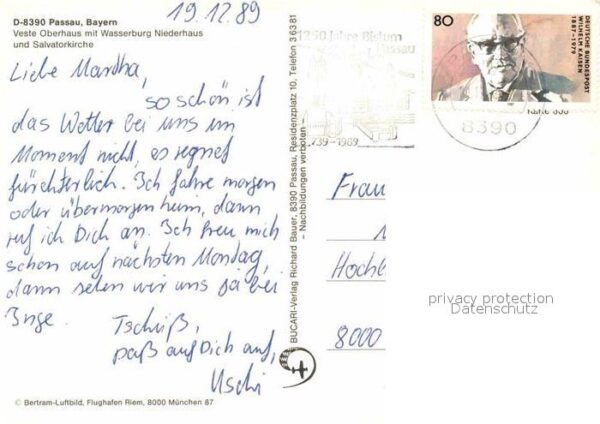 19.12.89
D-8390 Passau, Bayern
Veste Oberhaus mit Wasserburg Niederhaus
und Salvatorkirche
Liebe Martha,
so schön ist
das Wetter bei uns im
Moment nicht, es regnet
fürchterlich. Ich fahre morgen
oder übermorgen heim, dann
ruf ich Dich an. Ich freu mich
schon auf nächsten Montag,
dann sehen wir uns ja bei
Inge.
Tschüß,
paß auf Dich auf,
Uschi
© Bertram-Luftbild, Flughafen Riem, 8000 München 87
BUCARI-Verlag Richard Bauer, 8390 Passau, Residenzplatz 10, Telefon 3 63 81
– Nachbildungen verboten –
1250 Jahre Bistum
Passau
739-1989
8390
80
DEUTSCHE BUNDESPOST
WILHELM KAISEN
1887-1979
Frau
1
8000
privacy protection
Datenschutz